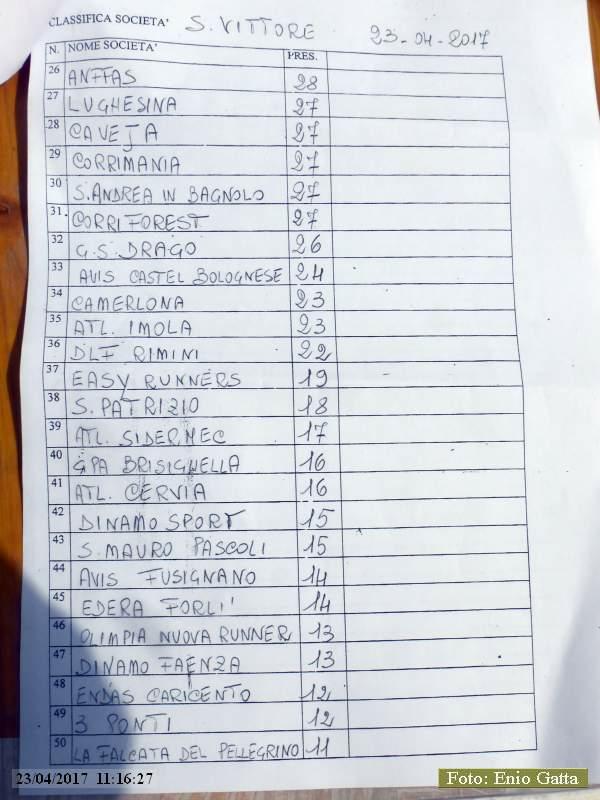 CLASSIFICA SOCIETA' S. VITTORE 23-04-2017
N. NOME SOCIETA' PRES.
26 ANFFAS 28
27 LUGHESINA 27
28 CAVEJA 27
29 CORRIMANIA 27
30 S. ANDREA IN BAGNOLO 27
31. CORRIFOREST 27
32 G.S. DRAGO 26
33 AVIS CASTEL BOLOGNESE 24
34 CAMERLONA 23
35 ATL. IMOLA 23
36 DLF RIMINI 22
37 EASY RUNNERS 19
38 S. PATRIZIO 18
39 ATL. SIDERMEC 17
40 GPA BRISIGHELLA 16
41 ATL. CERVIA 16
42 DINAMO SPORT 15
43 S. MAURO PASCOLI 15
44 AVIS FUSIGNANO 14
45 EDERA FORLI' 14
46 OLIMPIA NUOVA RUNNER 13
47 DINAMO FAENZA 13
48 ENDAS CARICENTO 12
49 3 PONTI 12
50 LA FALCATA DEL PELLEGRINO 11
23/04/2017 11:16:27
Foto: Enio Gatta